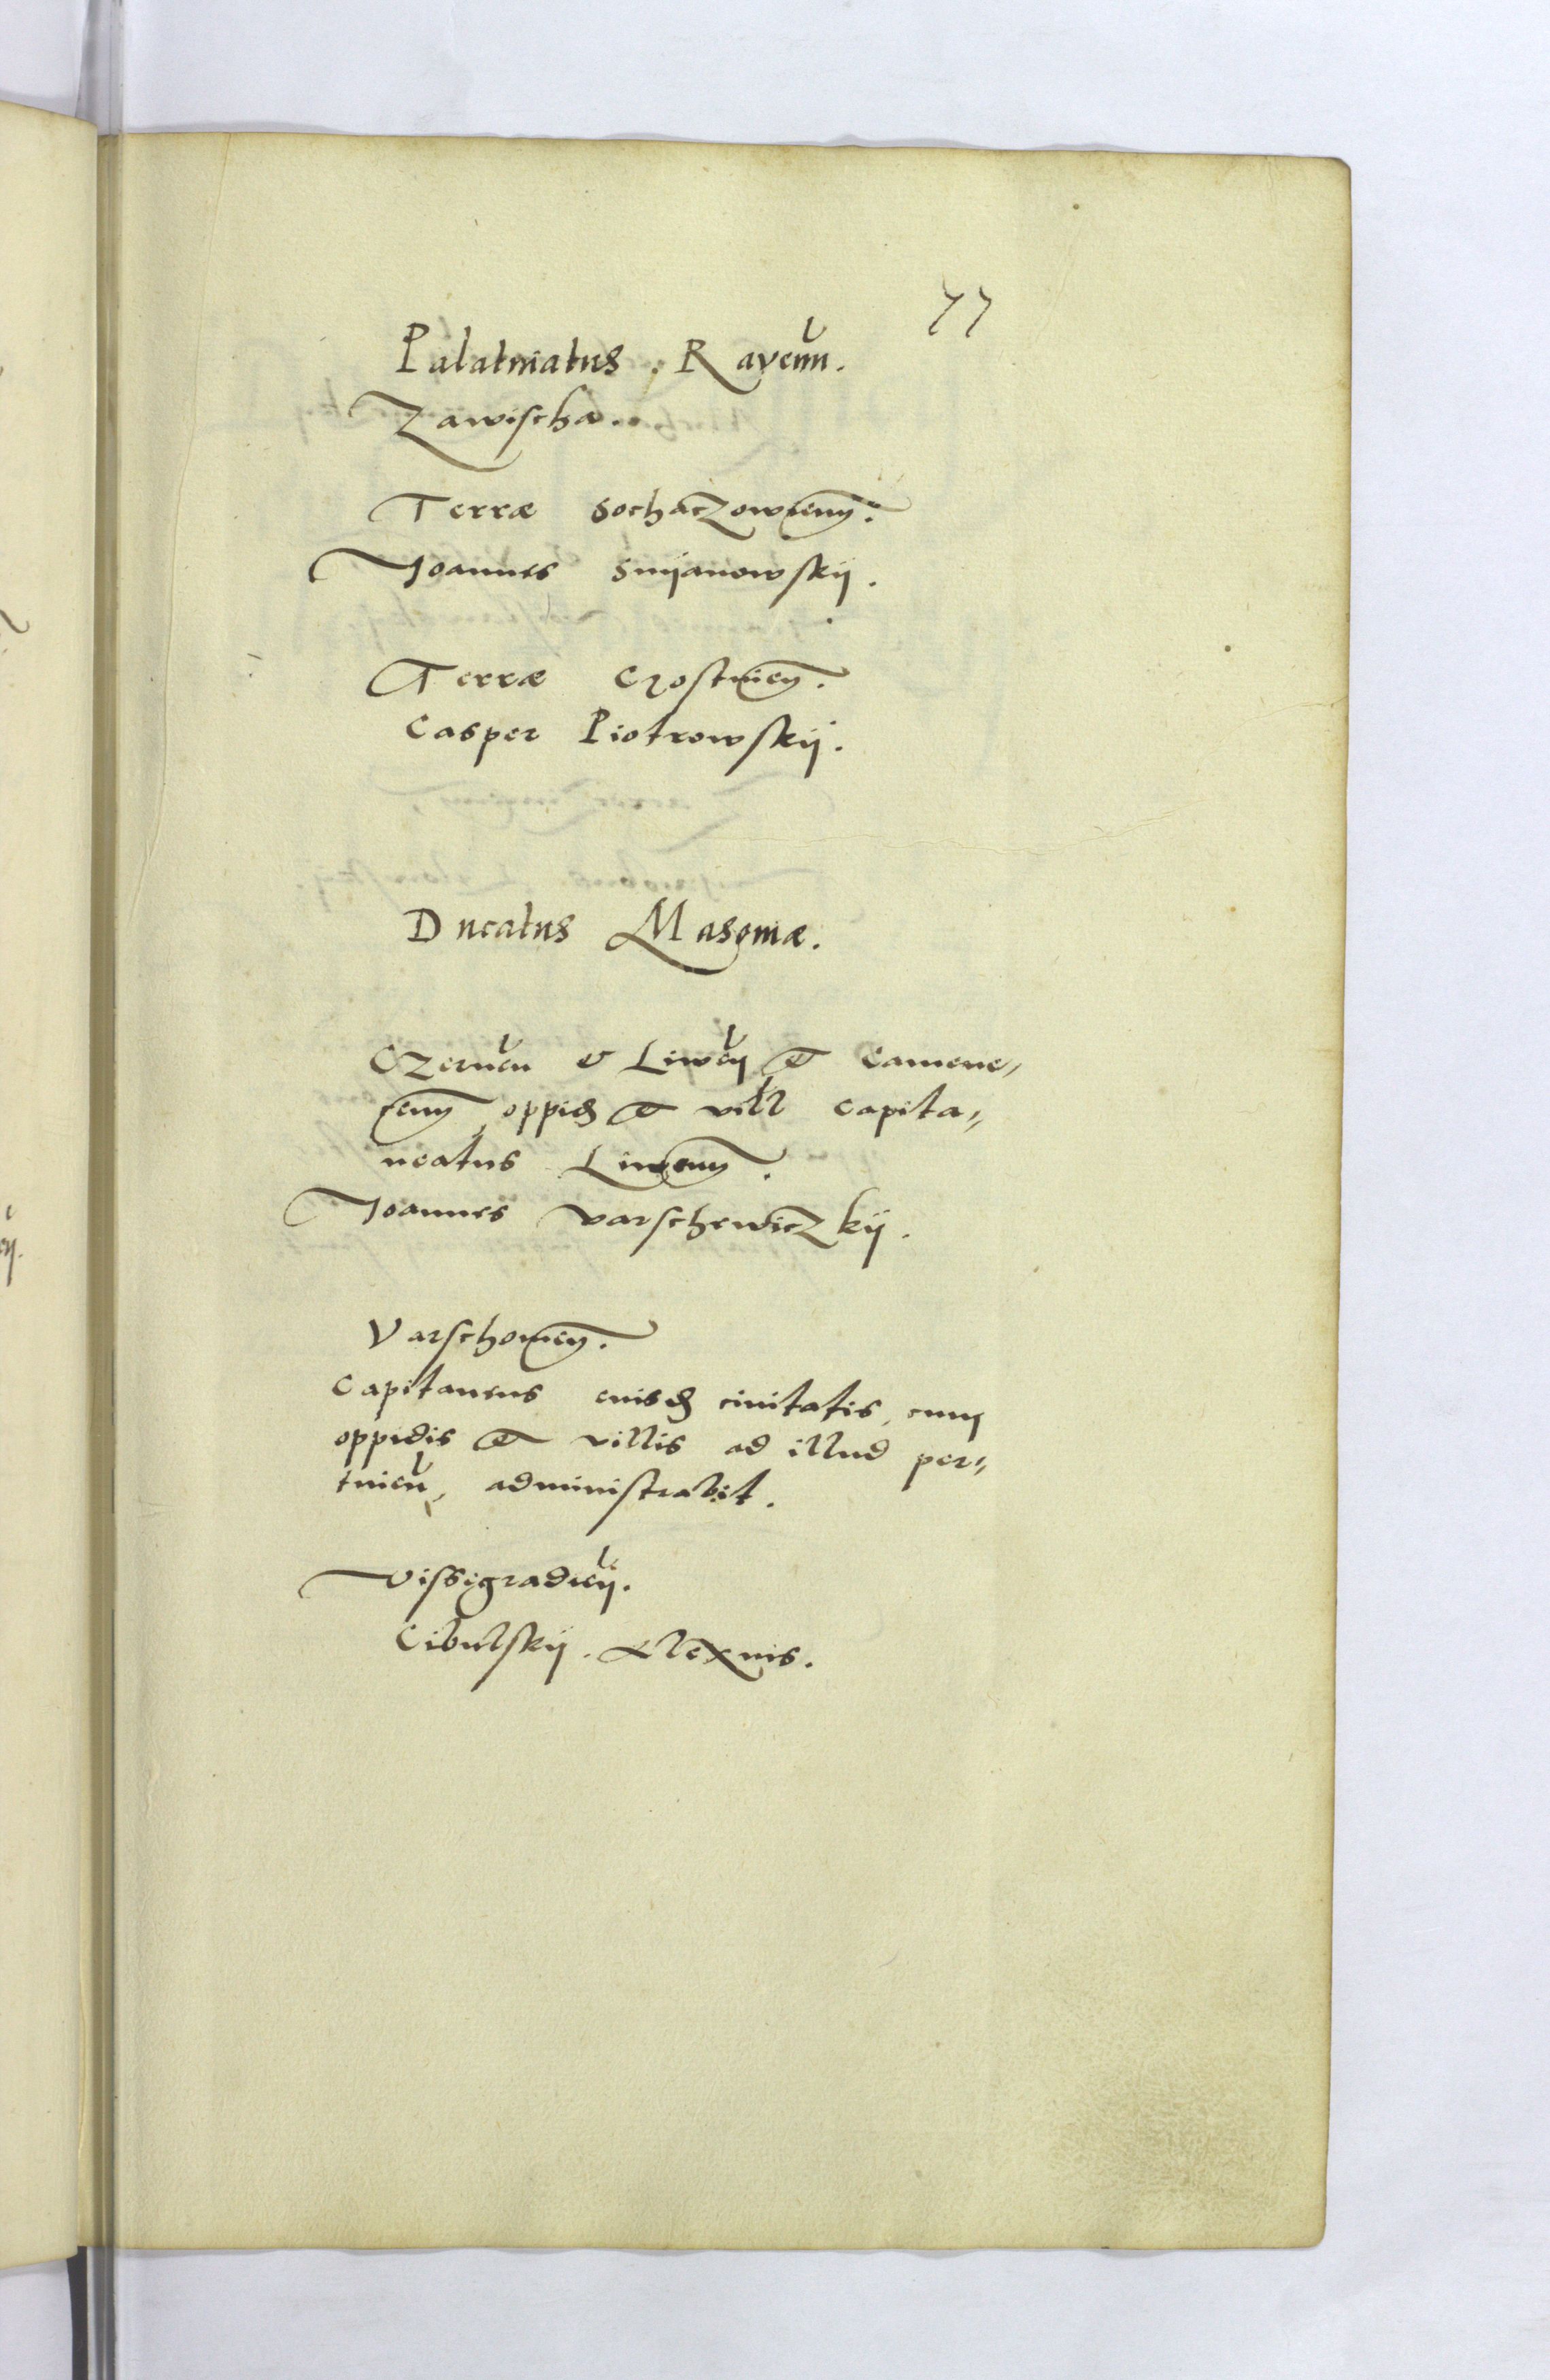 77
Palatinatus Raven̄.
Zawischa.
Terræ Sochaczowien̄.
Joannes Smijanowskij.
Terræ Gostinien̄.
Casper Piotrowskij.
Ducatus Masoviæ.
Czernen̄ & Liwen̄ et Camene,,
cen̄ oppid et vill capita,,
neatus Liwen̄.
Joannes Varschewiczkij.
Varschovien̄.
Capitaneus eiusd civitatis, cum
oppidis et villis ad illud per,,
tinen̄, administrabit.
Vissegradien̄.
Cibulskij. Alexius.